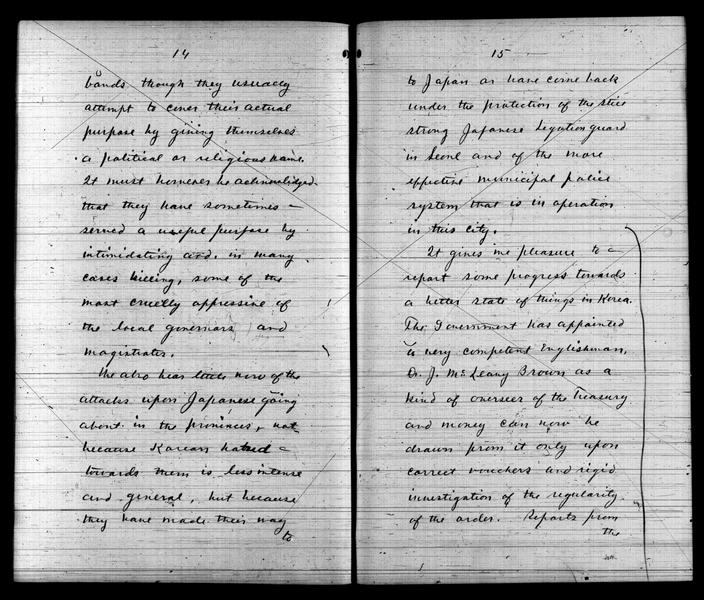 14
bands though they usually
attempt to cover their actual
purpose by giving themselves
a political or religious name.
It must however be acknowledged
that they have sometimes
served a useful purpose by
intimidating and, in many
cases killing, some of the
most cruelly oppressive of
the local governors and
magistrates.
We also hear little now of the
attacks upon Japanese going
about in the provinces, not
because Korean hatred
towards them is less intense
and general, but because
they have made their way
to
15
to Japan or have come back
under the protection of the still
strong Japanese Legation guard
in Seoul and of the more
effective municipal police
system that is in operation
in this city.
It gives me pleasure to
report some progress towards
a better state of things in Korea.
The Government has appointed
a very competent Englishman,
Dr. J. McLeavy Brown as a
kind of overseer of the Treasury
and money can now be
drawn from it only upon
correct vouchers and rigid
investigation of the regularity
of the order. Reports from
the